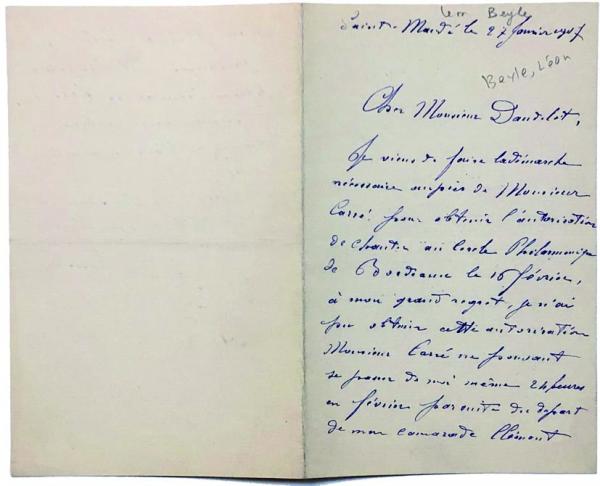 Léon Beyle
Saint-Mandé le 27 janvier 1907
Beyle, Léon
Cher Monsieur Dandelot,
Je viens de faire la démarche
nécessaire auprès de Monsieur
Carré pour obtenir l'autorisation
de chanter au cercle Philarmonique
de Bordeaux le 16 février,
à mon grand regret, je n'ai
pu obtenir cette autorisation
Monsieur Carré ne pouvant
se passer de moi même 24 heures
en février par suite du départ
de mon camarade Clément